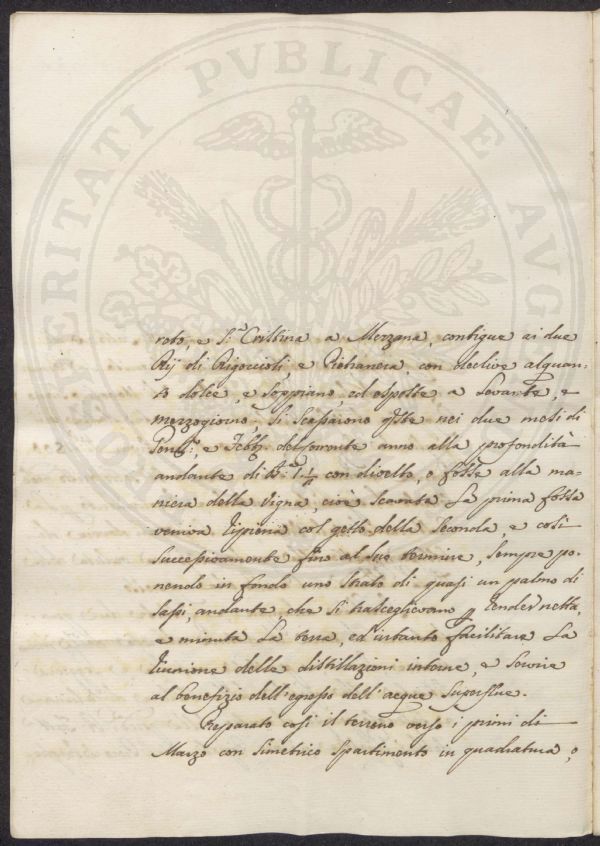 PROSPERITATI PVBLICAE AVG
roto, e S.ª Cristina a Mezzana, contigue ai due
Rij di Rigoccioli, e Pietranera, con declive alquan-
to dolce, e soppiano, ed esposte a Levante, e
mezzogiorno, si scassarono qste nei due mesi di
Genn.º e Febb.º del corrente anno alla profondità
andante di B.ª 1½ con divelto, o fosse alla ma-
niera della vigna, cioè scavata la prima fossa
veniva ripiena col getto della seconda, e così
successivamente fino al suo termine, sempre po-
nendo in fondo uno strato di quasi un palmo di
sassi, andante, che si trasceglievano p render netta,
e minuta la terra, ed intanto facilitare la
riunione delle distillazioni interne, e servire
al benefizio dell'egresso dell'acque superflue.
Preparato così il terreno verso i primi di
Marzo con simetrico spartimento in quadratura, o